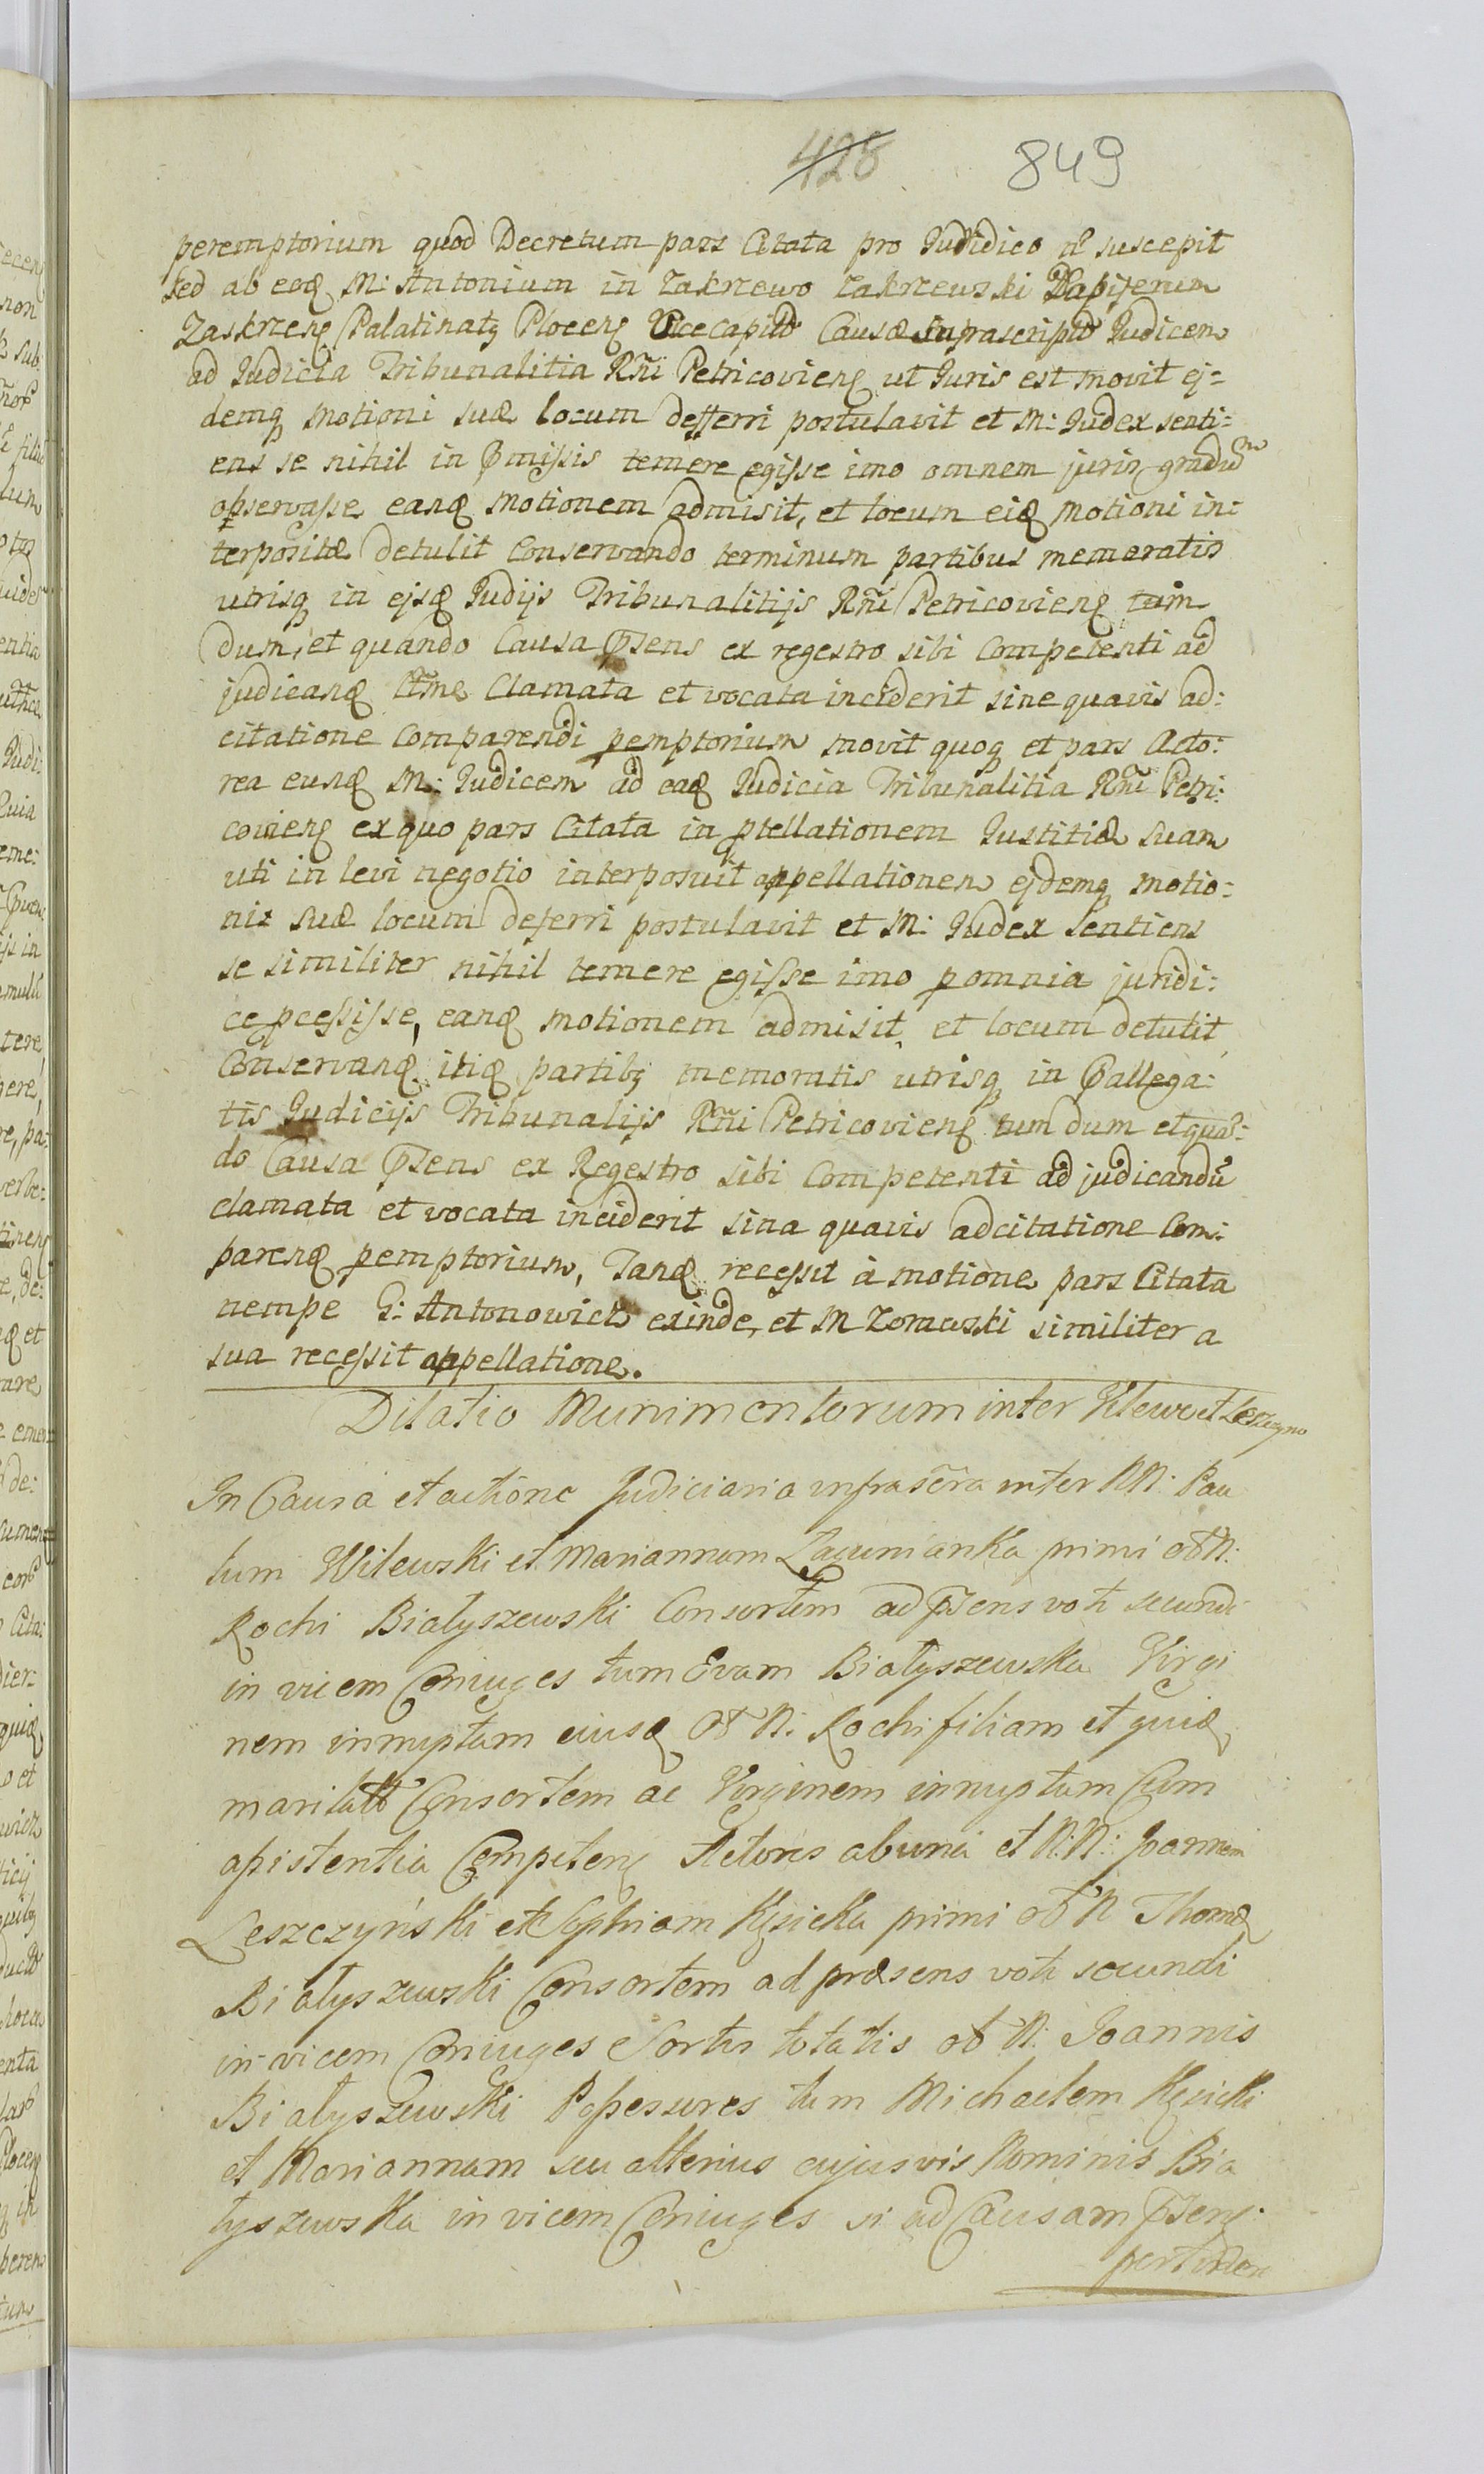 428 849
peremptorium quod Decretum pars Citata pro Judidico ñ suscepit
sed ab eoq M: Antonium in Zakrzewo Zakrzewski Dapiferum
Zaskrzenʒ Palatinatʒ Plocenʒ Vicecapitñ Causæ suprascriptñ Judicem
ad Judicia Tribunalitia Rñi Petricovienʒ ut Juris est movit ej=
demq motioni suæ locum defferri postulavit et M: Judex senti=
ens se nihil in Pmissis temere egisse imo omnem juris gradum
observasse eanq motionem admisit, et locum eiq motioni in=
terpositæ detulit Conservando terminum partibus memoratis
utrisq in ejsq Judijs Tribunalitijs Rñi Petricovienʒ tum
dum, et quando Causa Psens ex regestro sibi Competenti ad
judicanq Clamata et vocata inciderit sine quavis ad:
citatione Comparendi pemptorium movit quoq et pars Acto:
rea eunq M: Judicem ad eaq Judicia Tribunalitia Rñi Petri:
covienʒ ex quo pars Citata in ptellationem Justitiæ suam
uti in levi negotio interposuit appellationem ejdemq motio:
nis suæ locum deferri postulavit et M: Judex Sentiens
se similiter nihil temere egisse imo pomnia juridi:
ce pcessisse, eanq motionem admisit, et locum detulit
Conservanq itiq partibʒ memoratis utrisq in Pallega:
tis Judicijs Tribunalijs Rñi Petricovienʒ tum dum et quañ:
do Causa Psens ex Regestro sibi Competenti ad judicandũ
clamata et vocata inciderit sina quavis adcitatione Com:
parenq pemptorium, Tanq recessit à motione pars Citata
nempe G: Antonowicz exinde, et M Zorawski similiter a
sua recessit appellatione.
Dilatio Munimentorum inter Vilew et Leszczyno
In Causa et actione Judiciaria infrascra inter NN: Pau
lum Wilewski et Mariannam primi ol N:
Rochi Białyszewski Consortem ad Psens voti secundi
in vicem Coniuges tum Evam Białyszewska Virgi
nem innuptam eiusq ol N: Rochi filiam et quiq
maritatñ Consortem ac Virginem innuptam Cum
assistentia Competenʒ Actores ab una et N:N: Joannem
Leszczyński et Sophiam Kęsicka primi ol N Thomæ
Białyszewski Consortem ad præsens voti secundi
in vicem Coniuges Sortis totalis ol N: Joannis
Białyszewski Possesures tum Michaelem Kęsicki
et Mariannam seu alterius cujusvis Nominis Bia
łyszewska in vicem Coniuges si ad Causam Psenʒ
pertinen